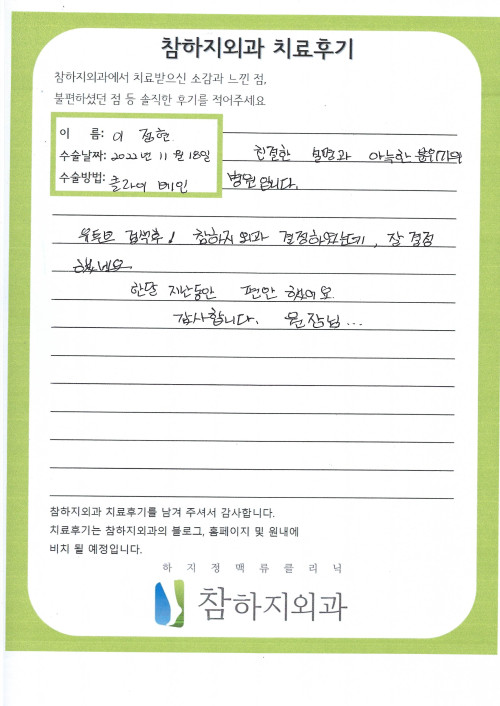 참하지외과 치료후기
참하지외과에서 치료받으신 소감과 느낀 점,
불편하셨던 점 등 솔직한 후기를 적어주세요
이 름: 이 점현
수술날짜: 2022년 11월 18일
수술방법: 클라이 베인
친절한 설명과 아늑한 분위기의
병원입니다.
유토브 검색후! 참하지 외과 결정하였는데, 잘 결정
했네요
한달 지난동안 편안 했어요.
감사합니다. 원장님...
참하지외과 치료후기를 남겨 주셔서 감사합니다.
치료후기는 참하지외과의 블로그, 홈페이지 및 원내에
비치 될 예정입니다.
하지정맥류클리닉
참하지외과